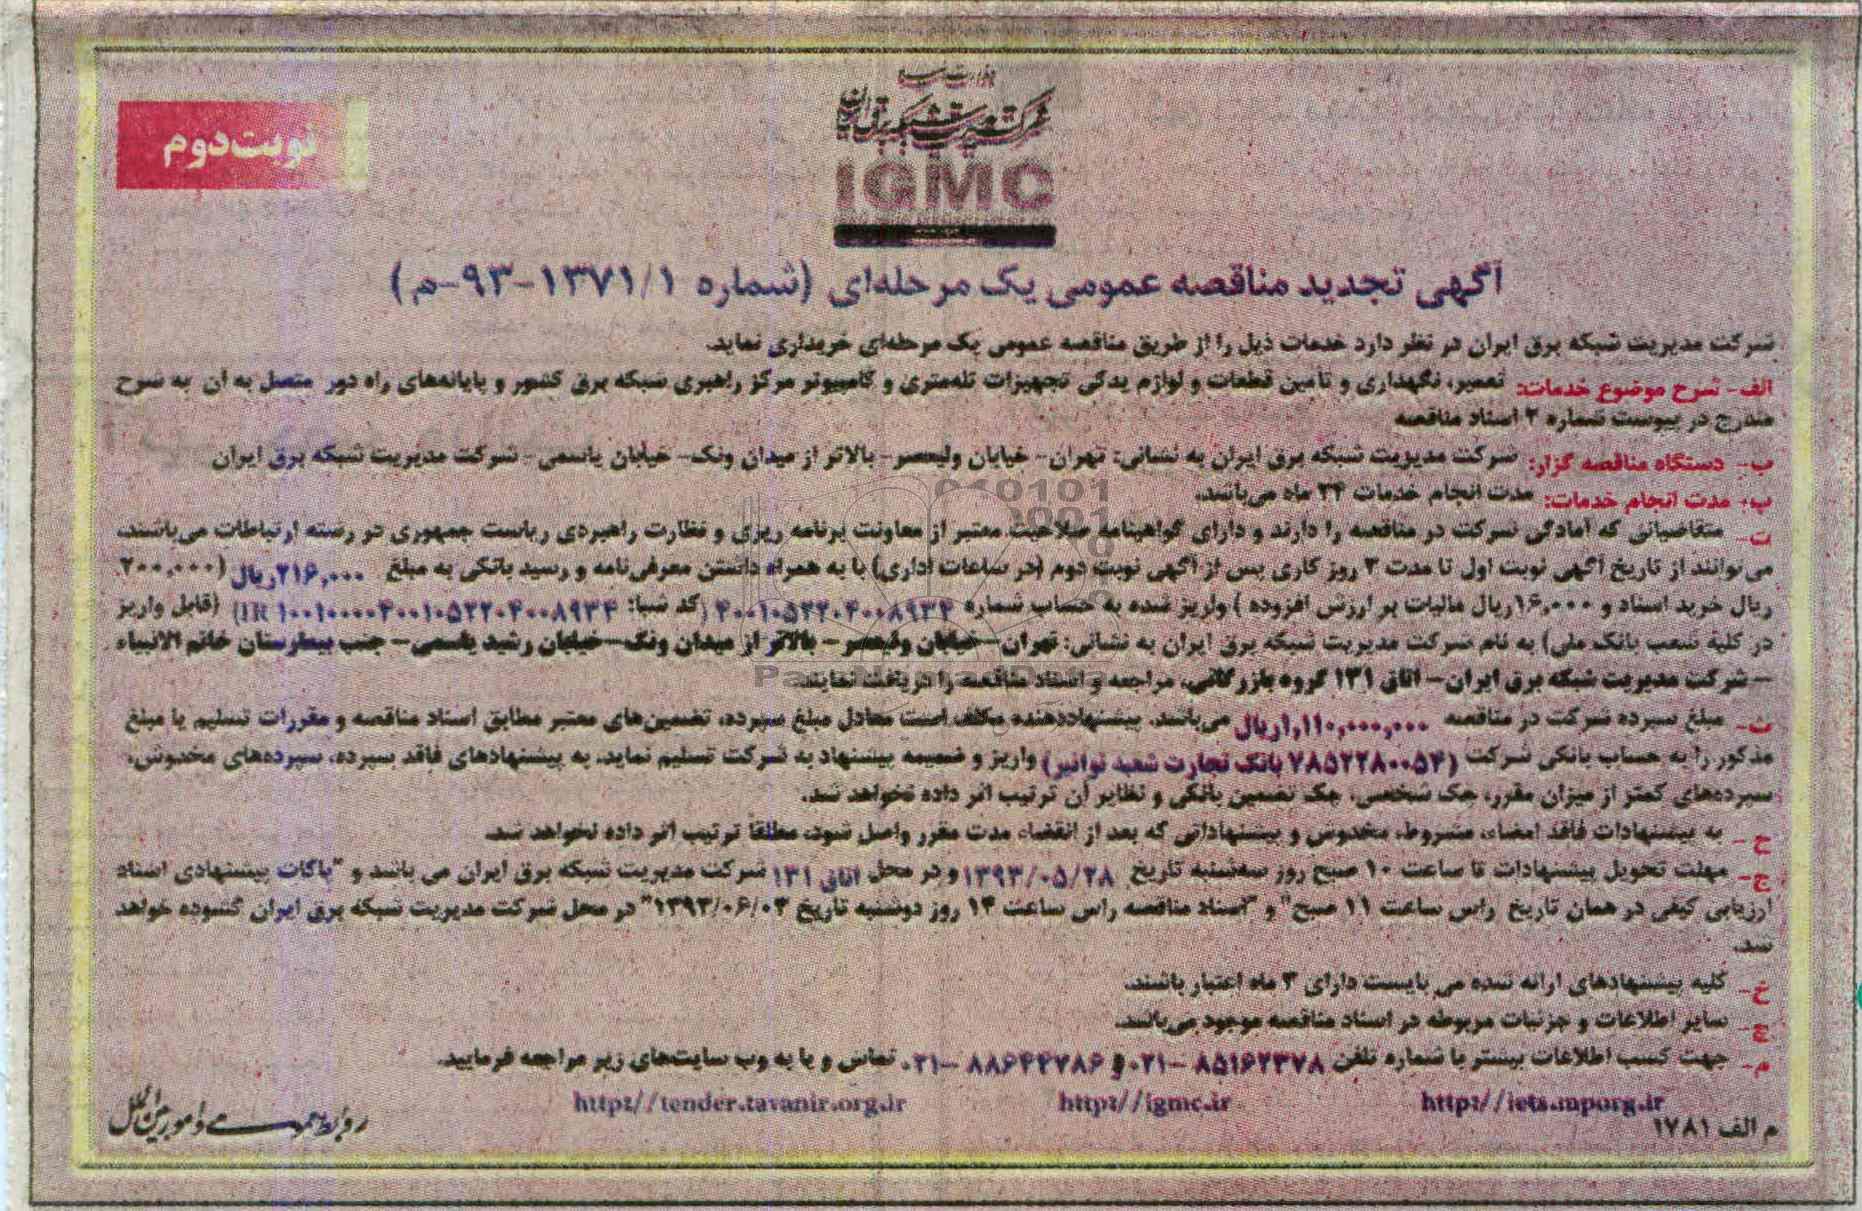 وزارت نیرو
شرکت مدیریت شبکه برق ایران
IGMC
نوبت دوم
آگهی تجدید مناقصه عمومی یک مرحله‌ای (شماره ۱۳۷۱/۱-۹۳-م)
شرکت مدیریت شبکه برق ایران در نظر دارد خدمات ذیل را از طریق مناقصه عمومی یک مرحله‌ای خریداری نماید.
الف- شرح موضوع خدمات: تعمیر، نگهداری و تامین قطعات و لوازم یدکی تجهیزات تله‌متری و کامپیوتر مرکز راهبری شبکه برق کشور و پایانه‌های راه دور متصل به آن به شرح
مندرج در پیوست شماره ۲ اسناد مناقصه
ب- دستگاه مناقصه گزار: شرکت مدیریت شبکه برق ایران به نشانی: تهران- خیابان ولیعصر- بالاتر از میدان ونک- خیابان یاسمی- شرکت مدیریت شبکه برق ایران
پ- مدت انجام خدمات: مدت انجام خدمات ۲۴ ماه می‌باشد.
ت- متقاضیانی که آمادگی شرکت در مناقصه را دارند و دارای گواهینامه صلاحیت معتبر از معاونت برنامه ریزی و نظارت راهبردی ریاست جمهوری در رشته ارتباطات می‌باشند،
می‌توانند از تاریخ آگهی نوبت اول تا مدت ۳ روز کاری پس از آگهی نوبت دوم (در ساعات اداری) با به همراه داشتن معرفی‌نامه و رسید بانکی به مبلغ ۲۱۶,۰۰۰ریال (۲۰۰,۰۰۰
ریال خرید اسناد و ۱۶,۰۰۰ریال مالیات بر ارزش افزوده) واریز شده به حساب شماره ۴۰۰۱۰۵۲۲۰۴۰۰۸۹۳۴ (کد شبا: IR ۱۰۰۱۰۰۰۰۴۰۰۱۰۵۲۲۰۴۰۰۸۹۳۴) (قابل واریز
در کلیه شعب بانک ملی) به نام شرکت مدیریت شبکه برق ایران به نشانی: تهران-خیابان ولیعصر - بالاتر از میدان ونک-خیابان رشید یاسمی- جنب بیمارستان خاتم الانبیاء
- شرکت مدیریت شبکه برق ایران- اتاق ۱۳۱ گروه بازرگانی، مراجعه و اسناد مناقصه را دریافت نمایند.
ث- مبلغ سپرده شرکت در مناقصه ۱,۱۱۰,۰۰۰,۰۰۰ریال می‌باشد. پیشنهاددهنده مکلف است معادل مبلغ سپرده، تضمین‌های معتبر مطابق اسناد مناقصه و مقررات تسلیم یا مبلغ
مذکور را به حساب بانکی شرکت (۷۸۵۲۲۸۰۰۵۴ بانک تجارت شعبه توانیر) واریز و ضمیمه پیشنهاد به شرکت تسلیم نماید. به پیشنهادهای فاقد سپرده، سپرده‌های مخدوش،
سپرده‌های کمتر از میزان مقرر، چک شخصی، چک تضمین بانکی و نظایر آن ترتیب اثر داده نخواهد شد.
ج - به پیشنهادات فاقد امضاء، مشروط، مخدوش و پیشنهاداتی که بعد از انقضاء مدت مقرر واصل شود، مطلقا ترتیب اثر داده نخواهد شد.
چ- مهلت تحویل پیشنهادات تا ساعت ۱۰ صبح روز سه‌شنبه تاریخ ۱۳۹۳/۰۵/۲۸ و در محل اتاق ۱۳۱ شرکت مدیریت شبکه برق ایران می باشد و "پاکات پیشنهادی اسناد
ارزیابی کیفی در همان تاریخ راس ساعت ۱۱ صبح" و "اسناد مناقصه راس ساعت ۱۴ روز دوشنبه تاریخ ۱۳۹۳/۰۶/۰۳" در محل شرکت مدیریت شبکه برق ایران گشوده خواهد
شد.
خ- کلیه پیشنهادهای ارائه شده می بایست دارای ۳ ماه اعتبار باشند.
چ- سایر اطلاعات و جزئیات مربوطه در اسناد مناقصه موجود می‌باشد.
م- جهت کسب اطلاعات بیشتر با شماره تلفن ۸۵۱۶۲۳۷۸-۰۲۱ و ۸۸۶۴۴۷۸۶-۰۲۱ تماس و یا به وب سایت‌های زیر مراجعه فرمایید.
http://iets.mporg.ir http://igmc.ir http://tender.tavanir.org.ir
م الف ۱۷۸۱
روابط عمومی و امور بین الملل